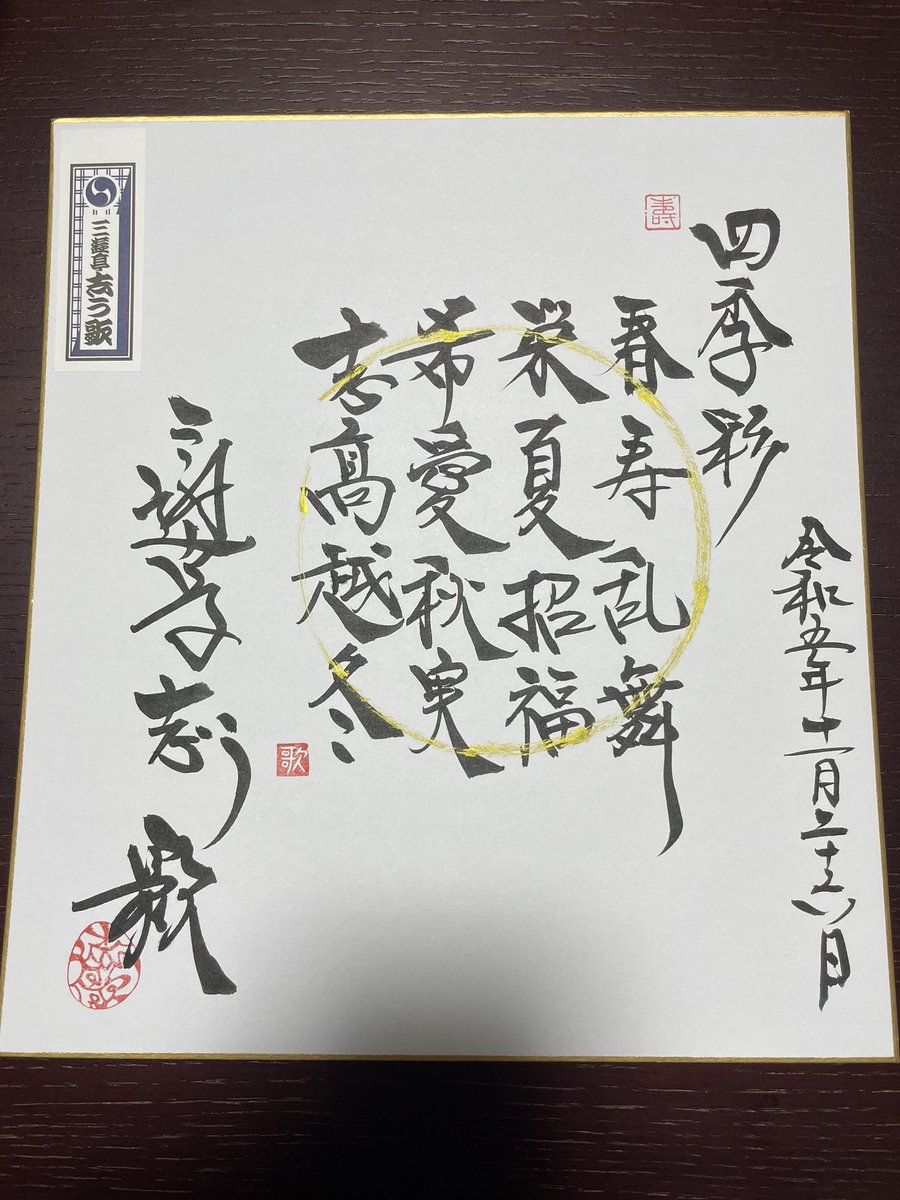 令和五年十一月二十六日
四季彩
壽
春寿乱舞
栄夏招福
希愛秋実
志高越冬
歌
三遊亭志う歌
三遊亭志う歌